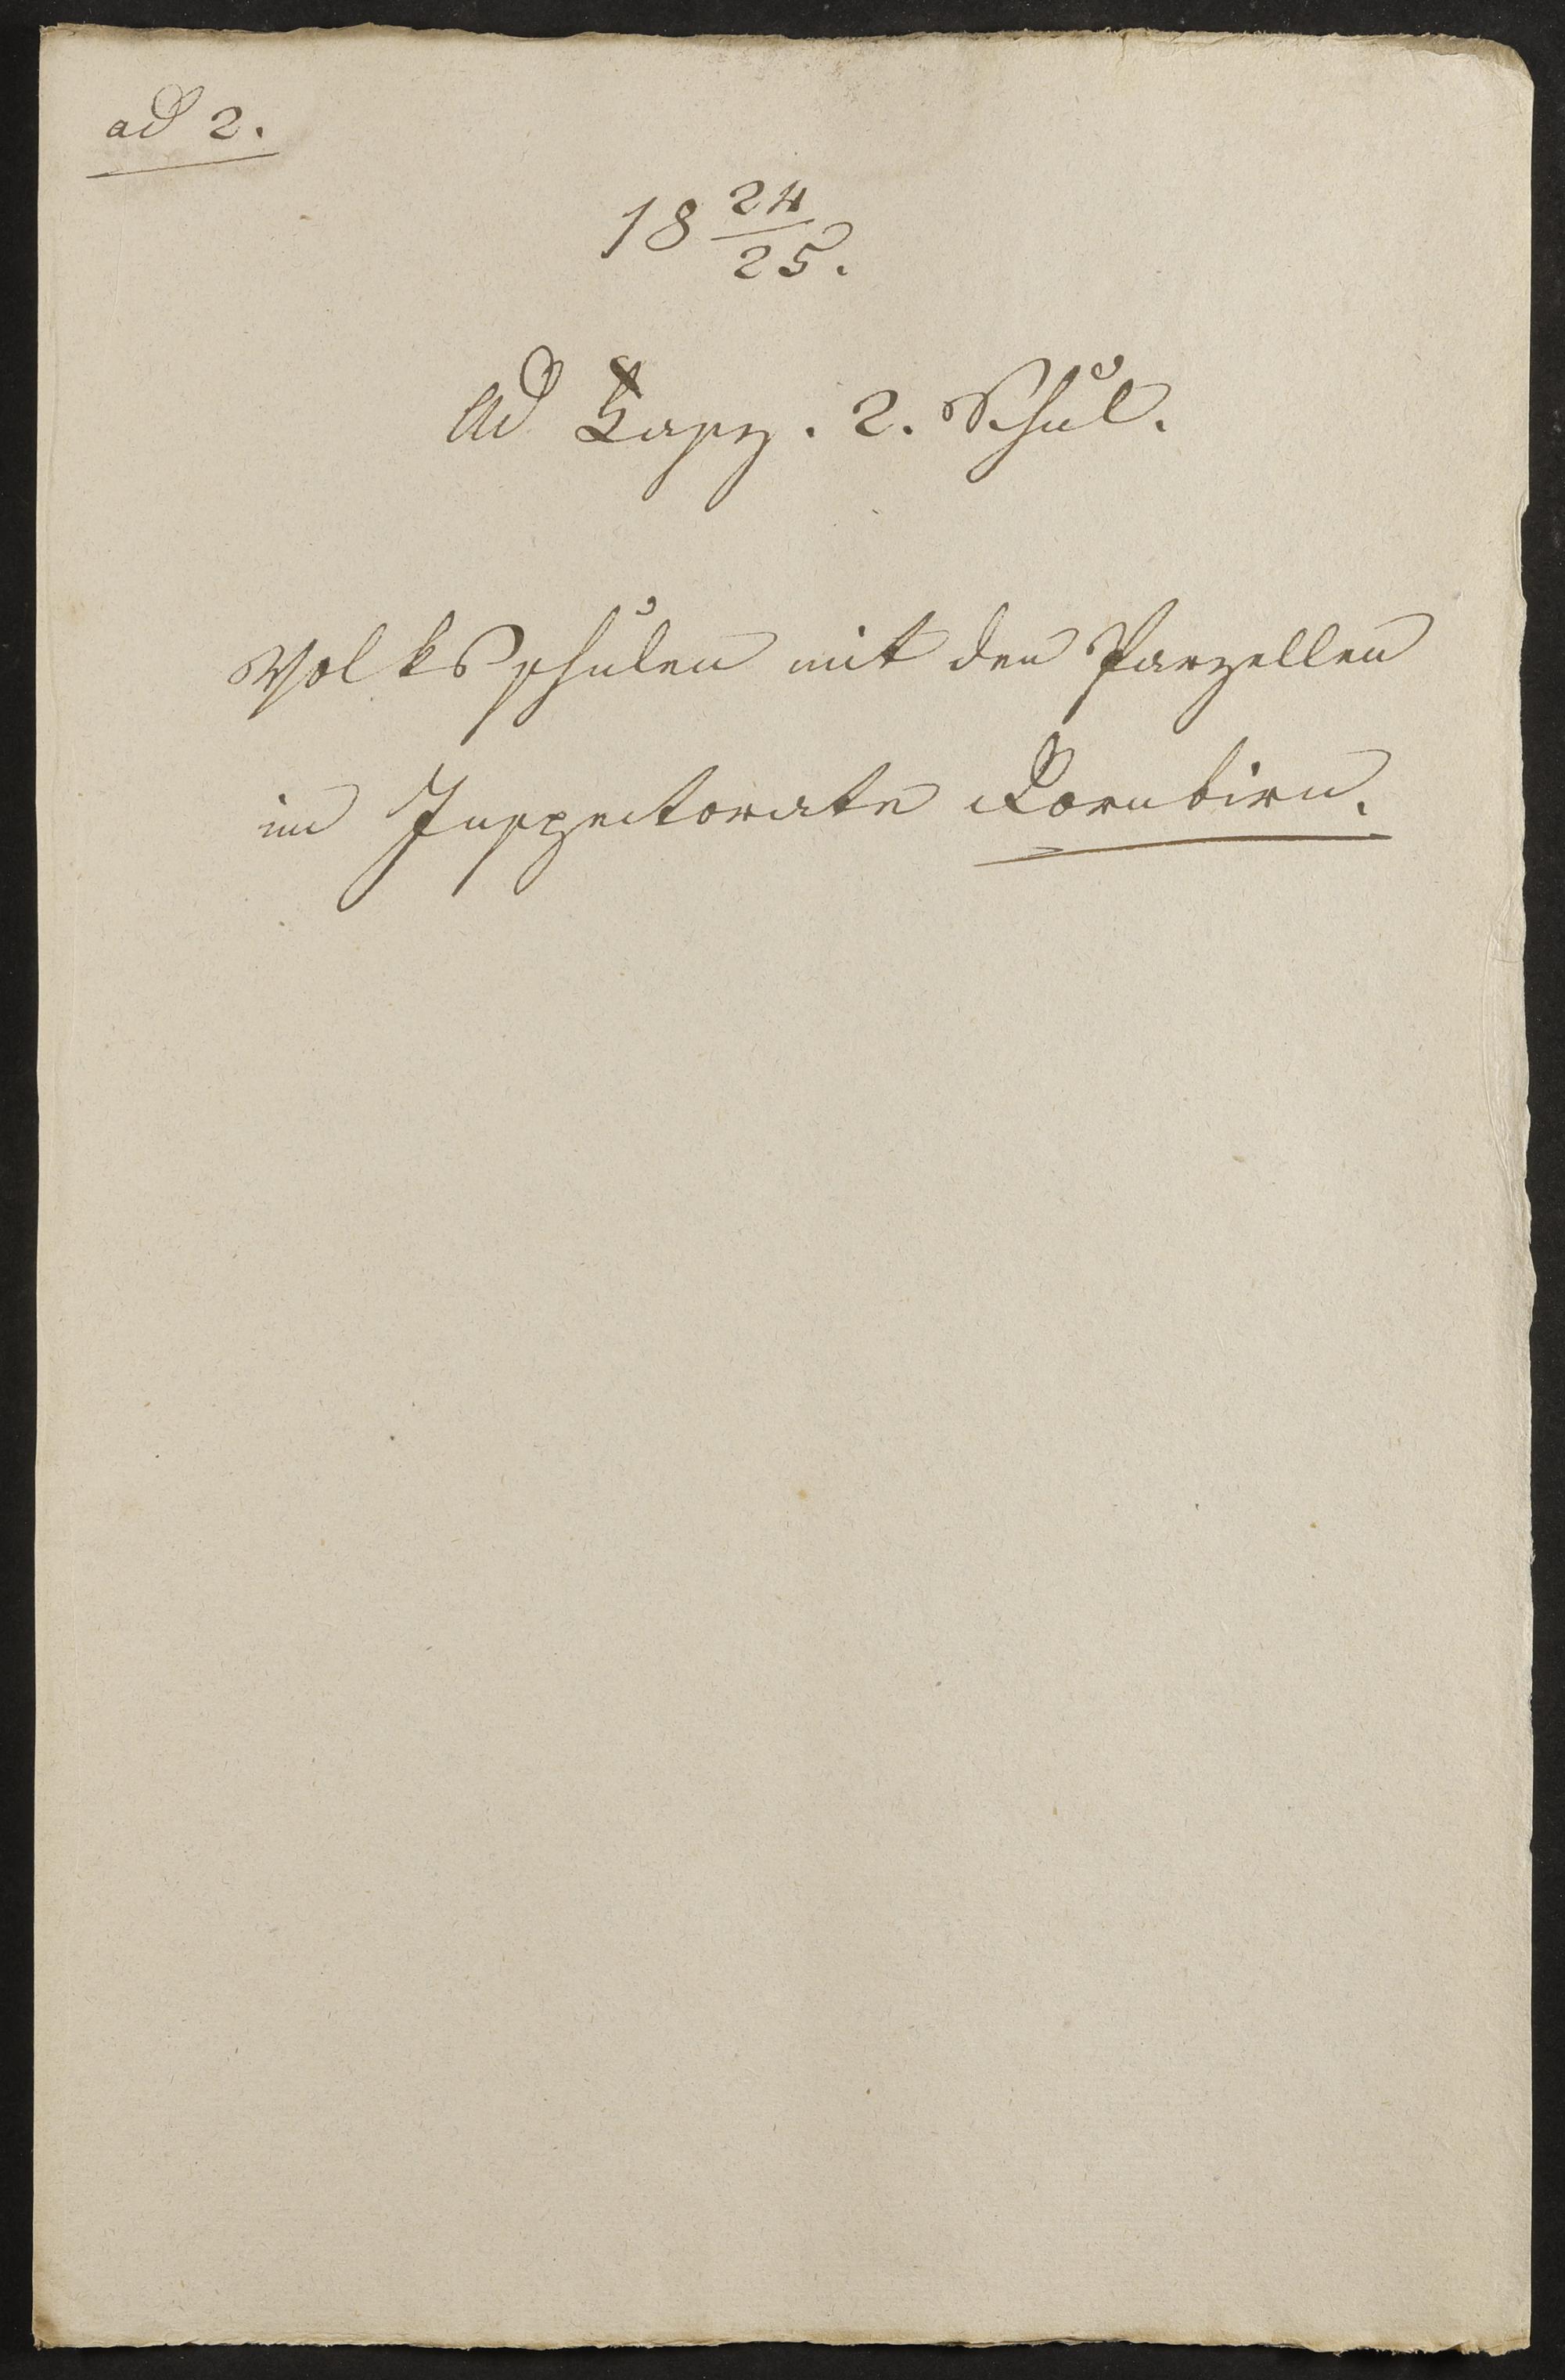 ad 2.
18 24/25.
Ad Fasz. 2. Schul.
Volksschulen mit den Parzellen
im Inspectorate Dornbirn.